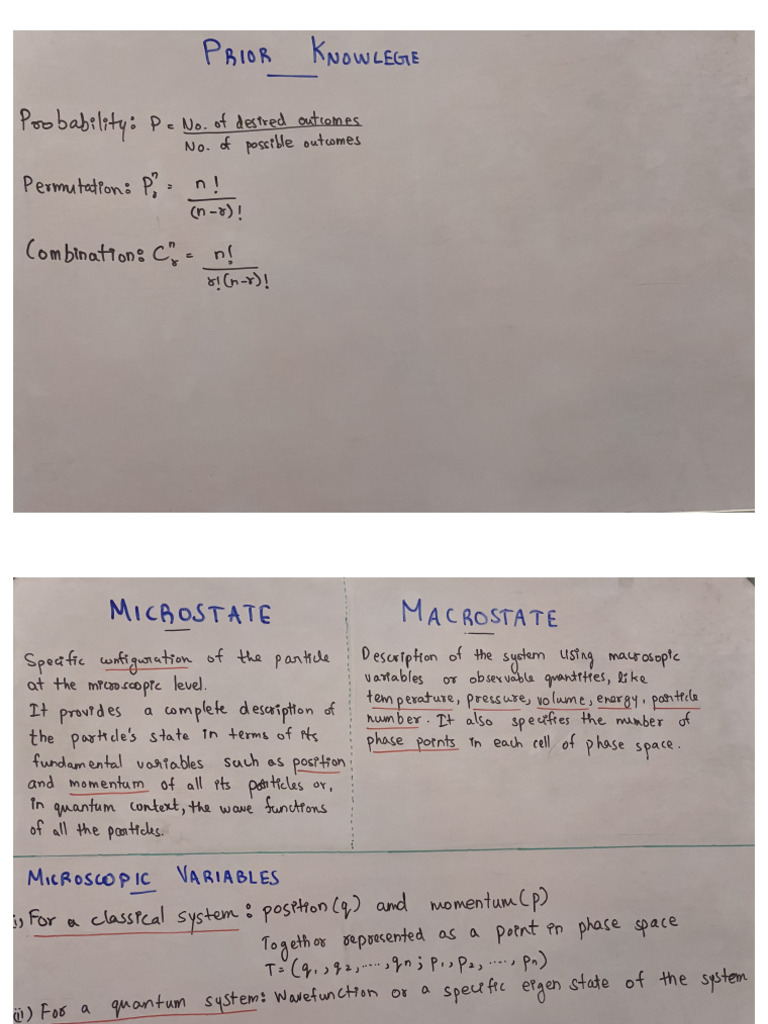 PRIOR KNOWLEGE
Probability: P = No. of desired outcomes
No. of possible outcomes
Permutation: Pⁿᵣ = n!
(n-r)!
Combination: Cⁿᵣ = n!
r!(n-r)!
MICROSTATE
Specific configuration of the particle
at the microscopic level.
It provides a complete description of
the particle's state in terms of its
fundamental variables such as position
and momentum of all its particles or,
in quantum context, the wave functions
of all the particles.
MACROSTATE
Description of the system using macrosopic
variables or observable quantities, like
temperature, pressure, volume, energy, particle
number. It also specifies the number of
phase points in each cell of phase space.
MICROSCOPIC VARIABLES
i) For a classical system: position(q) and momentum(p)
Together represented as a point in phase space
T = (q₁, q₂, ...., qn; p₁, p₂, ...., pn)
(ii) For a quantum system: Wavefunction or a specific eigen state of the system